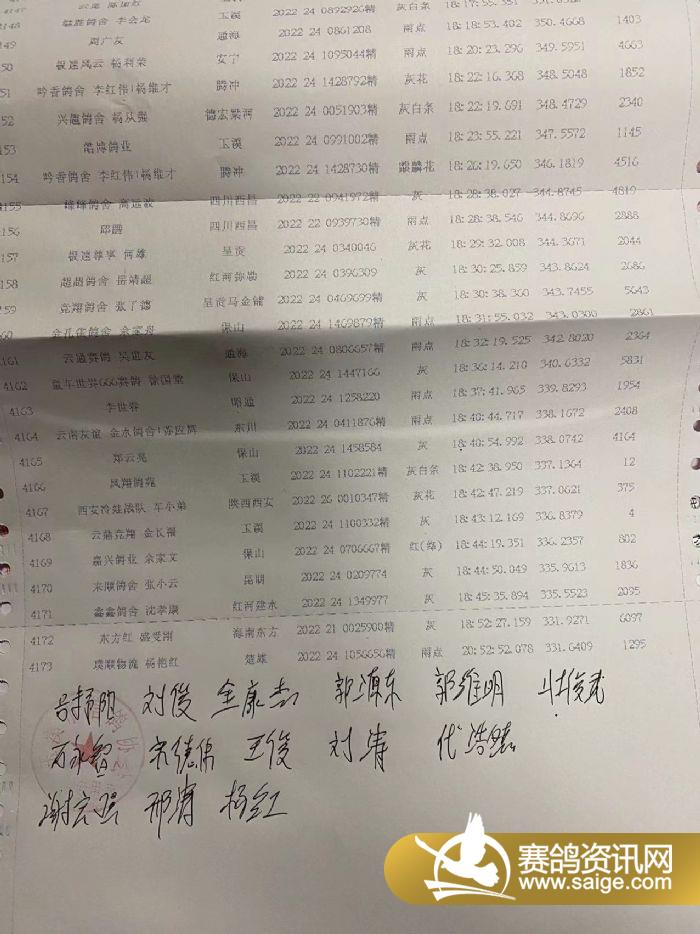 4148 李会龙 玉溪 2022 24 0892926精 灰白条
4149 周广友 通海 2022 24 0861208 雨点 18:18:53.402 350.4668 1403
极速风云 杨利荣 安宁 2022 24 1095044精 雨点 18:20:23.296 349.5951 4663
吟香鸽舍 李红伟\杨维才 腾冲 2022 24 1428792精 灰花 18:22:16.368 348.5048 1852
兴彪鸽舍 杨从强 德宏梁河 2022 24 0051903精 灰白条 18:22:19.691 348.4729 2340
皓博鸽业 玉溪 2022 24 0991002精 雨点 18:23:55.221 347.5572 1145
4154 吟香鸽舍 李红伟\杨维才 腾冲 2022 24 1428730精 麒麟花 18:26:19.650 346.1819 4516
4155 高运波 四川西昌 2022 22 0941972精 灰 18:28:38.027 344.8745 4819
4156 邱鹏 四川西昌 2022 22 0939730精 雨点 18:28:38.546 344.8696 2888
4157 极速尊享 何雄 呈贡 2022 24 0340046 灰花 18:29:32.008 344.3671 2044
4158 超越鸽舍 岳靖超 红河弥勒 2022 24 0396309 灰 18:30:25.859 343.8624 2686
竞翔鸽舍 张了德 呈贡马金铺 2022 24 0469699精 灰 18:30:38.360 343.7455 5643
金孔雀鸽舍 余家舟 保山 2022 24 1469879精 雨点 18:31:55.032 343.0300 2861
4161 云通赛鸽 吴进友 通海 2022 24 0806657精 雨点 18:32:19.525 342.8020 2364
4162 童车世界666赛鸽 徐国堂 保山 2022 24 1447166 灰 18:36:14.210 340.6332 5831
4163 李世春 昭通 2022 24 1258220 雨点 18:37:41.965 339.8293 1954
4164 云南友谊 金水鸽舍\苏应辉 东川 2022 24 0411876精 雨点 18:40:44.717 338.1672 2408
4165 郑云亮 保山 2022 24 1458584 灰 18:40:54.992 338.0742 4164
4166 凤翔鸽苑 玉溪 2022 24 1102221精 灰白条 18:42:38.950 337.1364 12
4167 西安冷娃战队 车小弟 陕西西安 2022 26 0010347精 灰花 18:42:47.219 337.0621 375
4168 云鼎竞翔 金长福 玉溪 2022 24 1100332精 灰 18:43:12.169 336.8379 4
4169 嘉兴鸽业 余家文 保山 2022 24 0706667精 红(绛) 18:44:19.351 336.2357 802
4170 来顺鸽舍 张小云 昆明 2022 24 0209774 灰 18:44:50.049 335.9613 1836
4171 鑫鑫鸽舍 沈孝康 红河建水 2022 24 1349977 灰 18:45:35.894 335.5523 2095
4172 东方红 盛受刚 海南东方 2022 21 0025900精 灰 18:52:27.159 331.9271 6097
4173 璞顺物流 杨艳红 楚雄 2022 24 1056656精 雨点 20:52:52.078 331.6409 1295
刘俊 金康杰 郭镇东 郭维明
石永智 宋德伟 王俊 刘涛 代浩然
谢宏强 邢涛 杨红
赛鸽资讯网
www.saige.com